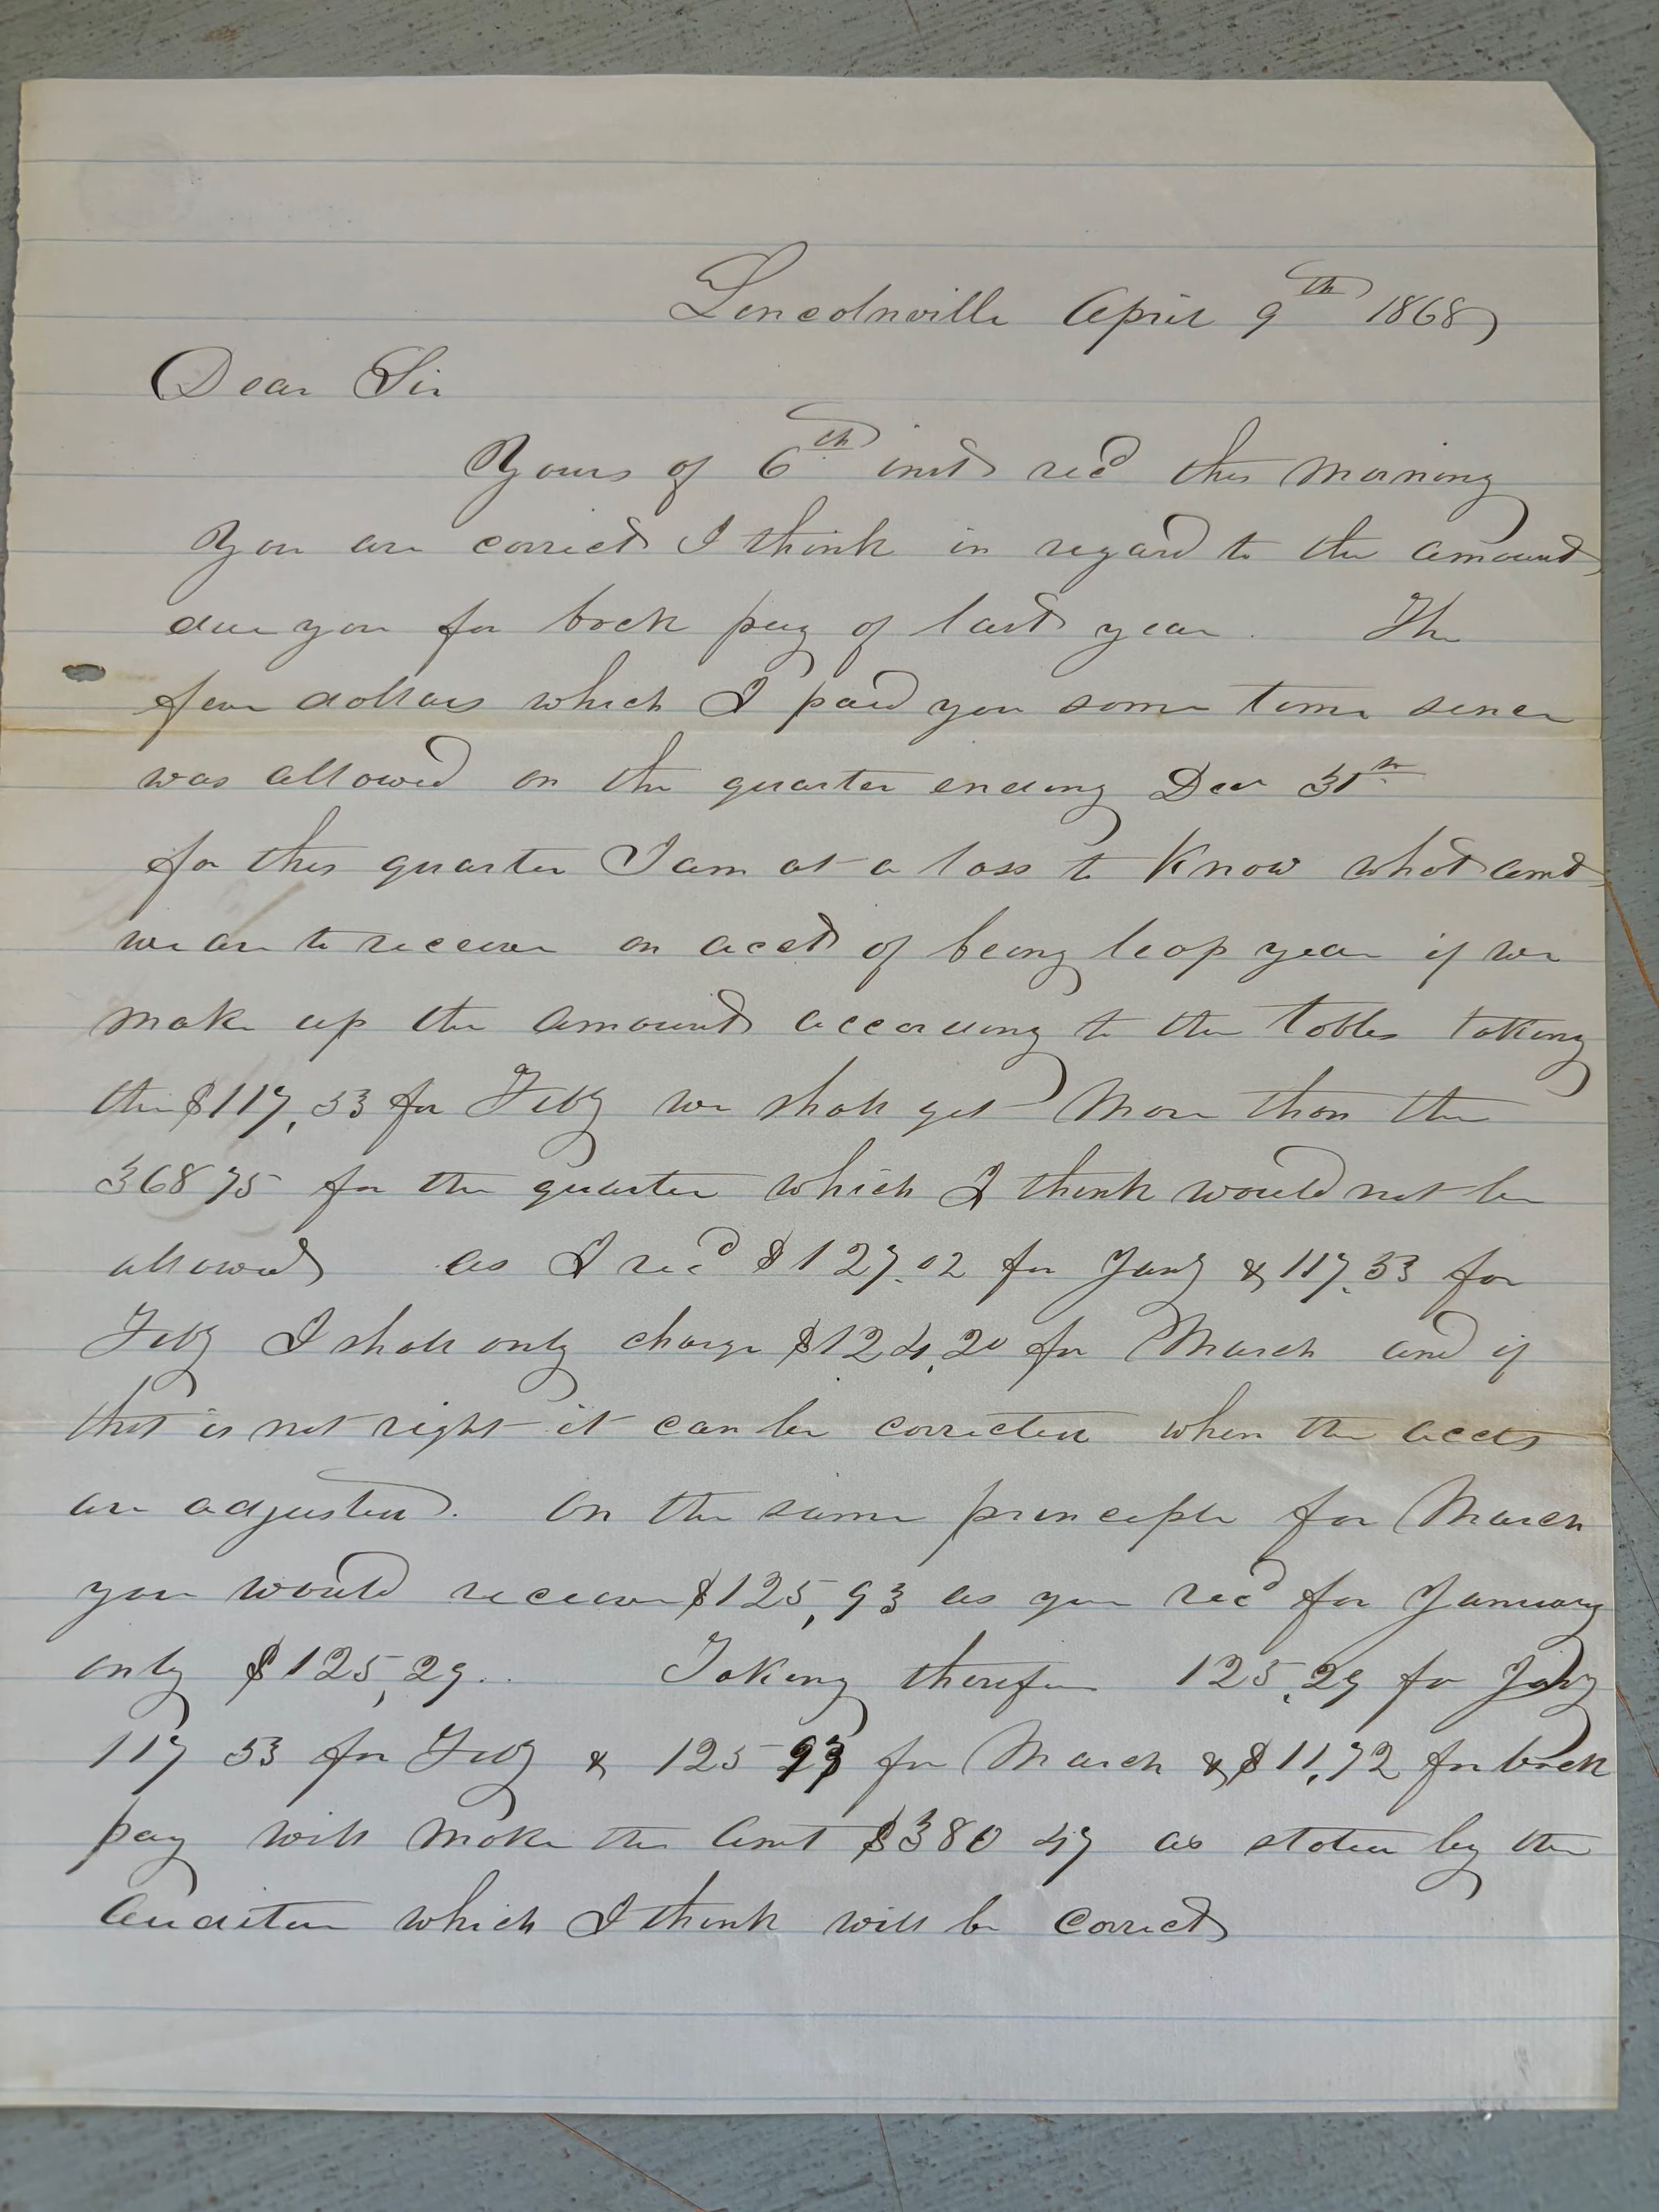 Lincolnville April 9th 1868
Dear Sir
Yours of 6th inst recd this morning
You are correct I think in regard to the amount
due you for back pay of last year. The
few dollars which I paid you some time since
was allowed on the quarter ending Dec 31st
for this quarter I am at a loss to know what amt
we are to receive on acct of being leap year if we
make up the amount according to the tables taking
the $117,53 for Feby we shall get more than the
36875 for the quarter which I think would not be
allowed as I recd $127.02 for Jany & 117.53 for
Feby I shall only charge $124,20 for March and if
that is not right it can be corrected when the accts
are adjusted. On the same principle for March
you would receive $125,93 as you recd for January
only $125,29.. Taking therefore 125,29 for Jany
117 53 for Feby & 125 93 for March & $11,72 for back
pay will make the amt $380 47 as stated by the
Auditor which I think will be correct